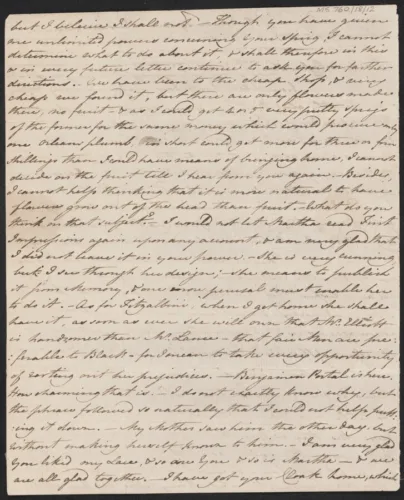 but I believe I shall not. – Though you have given
me unlimited powers concerning Your Sprig, I cannot
determine what to do about it, & shall therefore in this
& in every future letter continue to ask you for farther
directions. – We have been to the cheap Shop, & very
cheap we found it, but there are only flowers made
there, no fruit – & as I could get 4 or 5 very pretty sprigs
of the former for the same money which would procure only
one Orleans plumb, in short could get more for three or four
Shillings than I could have means of bringing home, I cannot
decide on the fruit till I hear from you again. – Besides,
I cannot help thinking that it is more natural to have
flowers grow out of the head than fruit. – What do you
think on that subject? – I would not let Martha read First
Impressions again upon any account, & am very glad that
I did not leave it in your power. – She is very cunning
but I see through her design; – she means to publish
it from Memory, & one more perusal must enable her
to do it. – As for Fitzalbini, when I get home she shall
have it, as soon as ever she will own that Mr. Elliott
is handsomer than Mr. Lance – that fair Men are pre-
-ferable to Black – for I mean to take every opportunity
of rooting out her prejudices. – Benjamin Portal is here.
How charming that is! – I do not exactly know why, but
the phrase followed so naturally that I could not help putt-
-ing it down. – My Mother saw him the other day, but
without making herself known to him. – I am very glad
You liked my Lace, & so are You & so is Martha – & we
are all glad together. – I have got your Cloak home, which